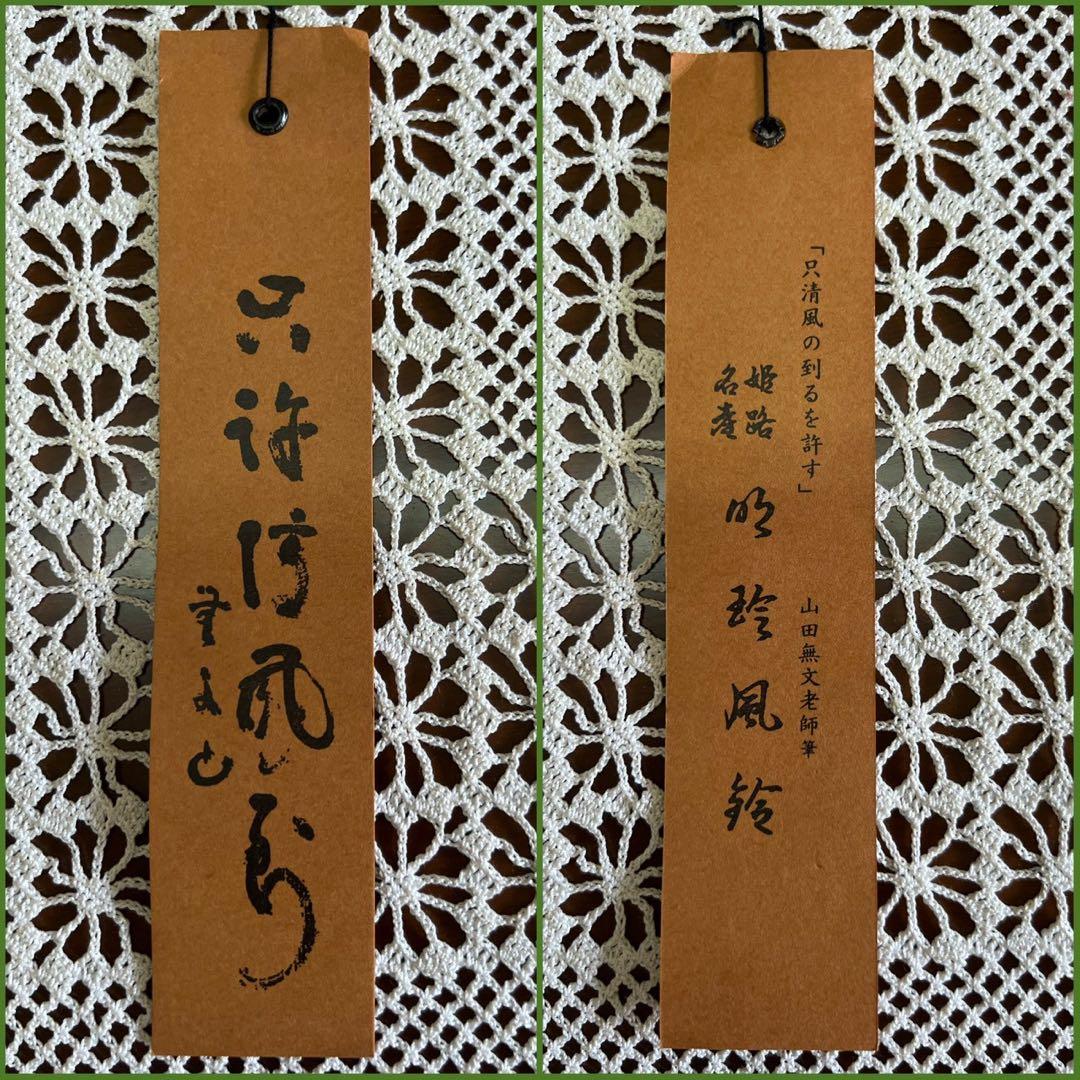 只許清風到
無文山
「只清風の到るを許す」　山田無文老師筆
姫路
名産
明玲風鈴